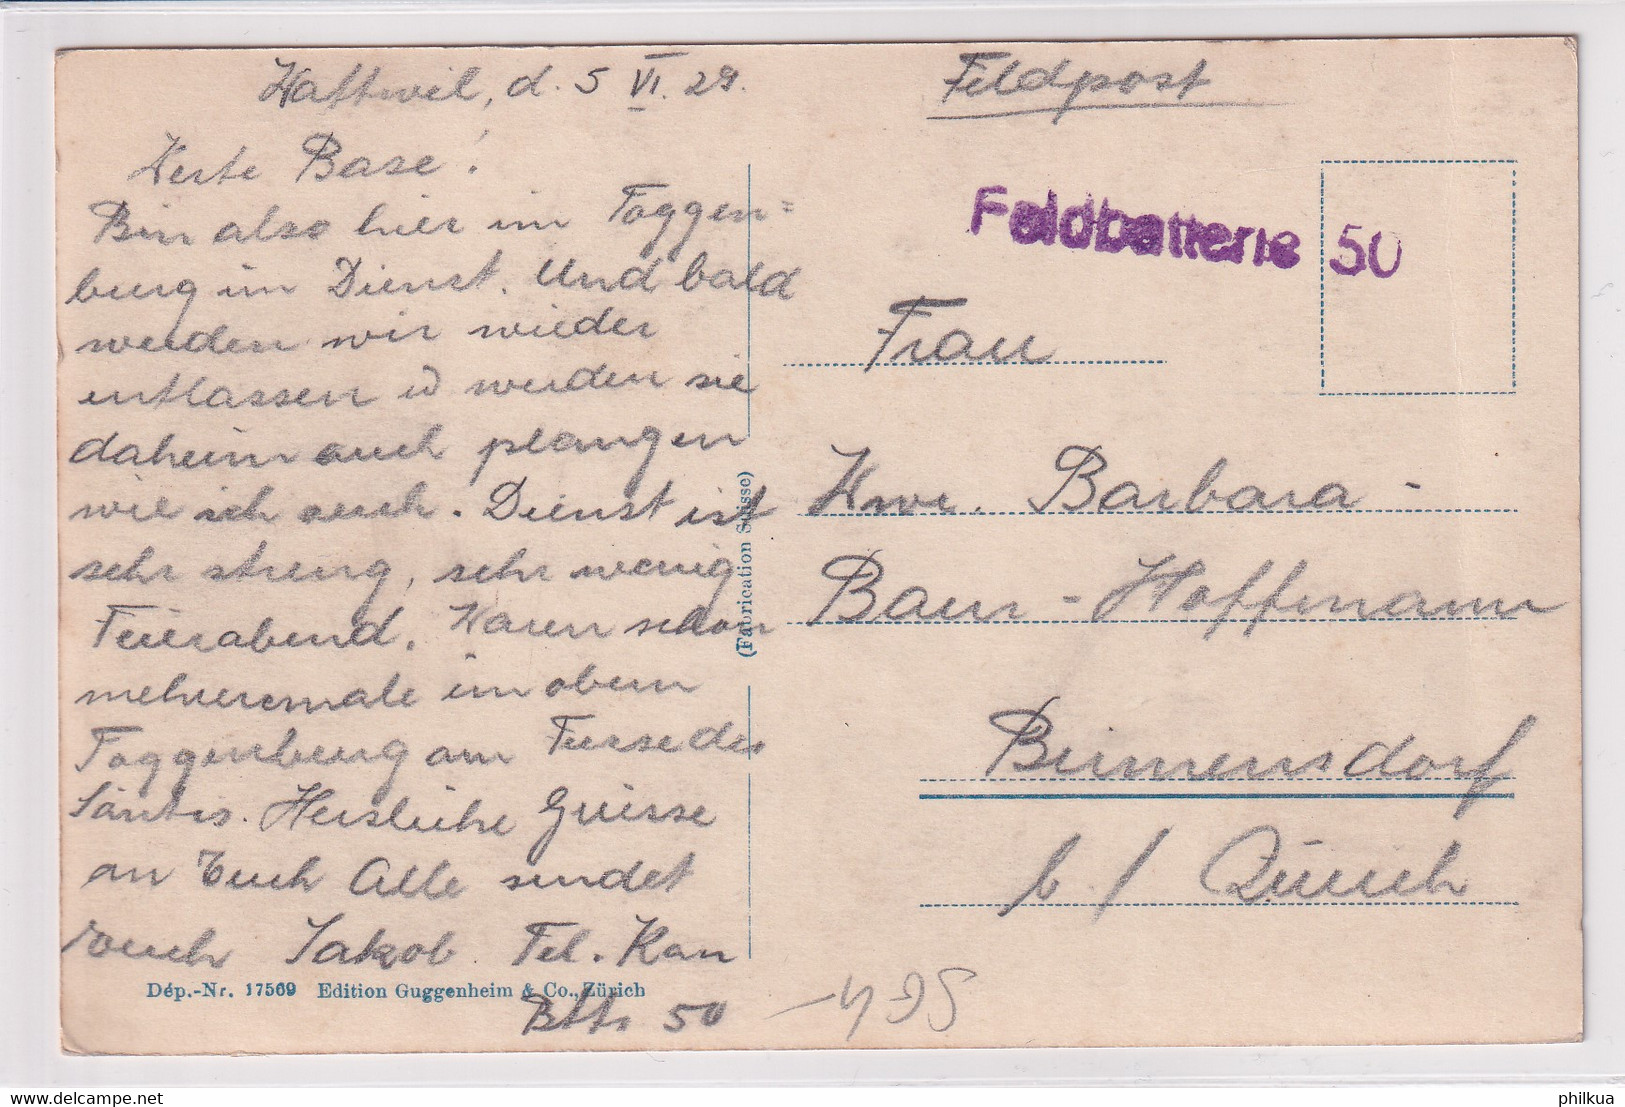 Wattwil, d. 5 VI. 29.
Werte Base!
Bin also hier im Toggen=
burg im Dienst. Und bald
werden wir wieder
entlassen u werden sie
daheim auch plangen
wie ich auch. Dienst ist
sehr streng, sehr wenig
Feierabend. Waren schon
mehreremale im obern
Toggenburg am Fusse des
Säntis. Herzliche Grüsse
an Euch Alle sendet
Euch Jakob Tel. Kan
Bttr 50
Dép.-Nr. 17569 Edition Guggenheim & Co., Zürich
(Fabrication Suisse)
Feldpost
Feldbatterie 50
Frau
Wwe. Barbara -
Baur - Hoffmann
Birmensdorf
b./ Zürich
495
philkua